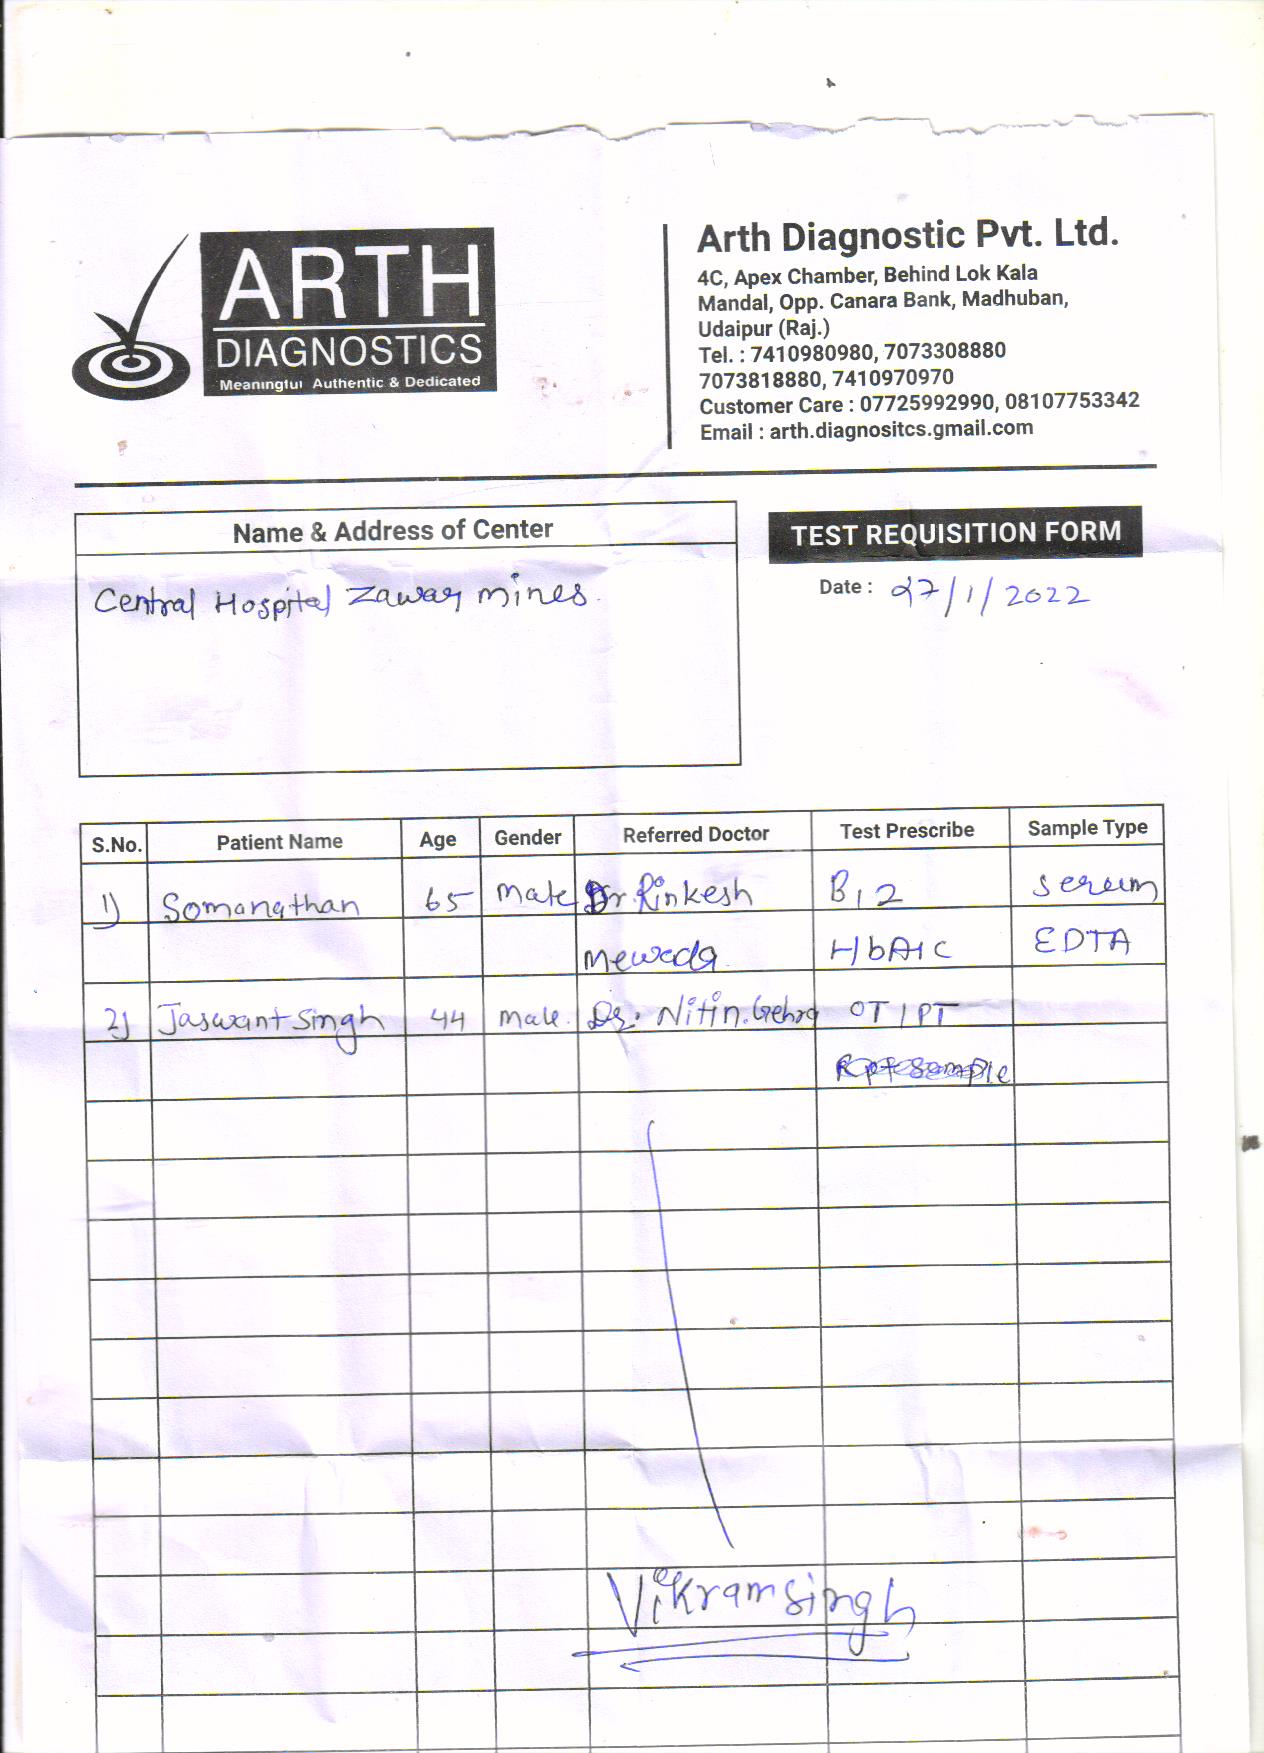 ARTH
DIAGNOSTICS
Meaningful Authentic & Dedicated
Arth Diagnostic Pvt. Ltd.
4C, Apex Chamber, Behind Lok Kala
Mandal, Opp. Canara Bank, Madhuban,
Udaipur (Raj.)
Tel. : 7410980980, 7073308880
7073818880, 7410970970
Customer Care : 07725992990, 08107753342
Email : arth.diagnositcs.gmail.com
Name & Address of Center
Central Hospital Zawar mines
TEST REQUISITION FORM
Date : 27/1/2022
S.No. Patient Name Age Gender Referred Doctor Test Prescribe Sample Type
1) Somanathan 65 Male Dr. Rinkesh B12 Serum
Mewada HbA1C EDTA
2) Jaswant Singh 44 Male. Dr. Nitin. OT/PT
Rpt sample
Vikramsingh